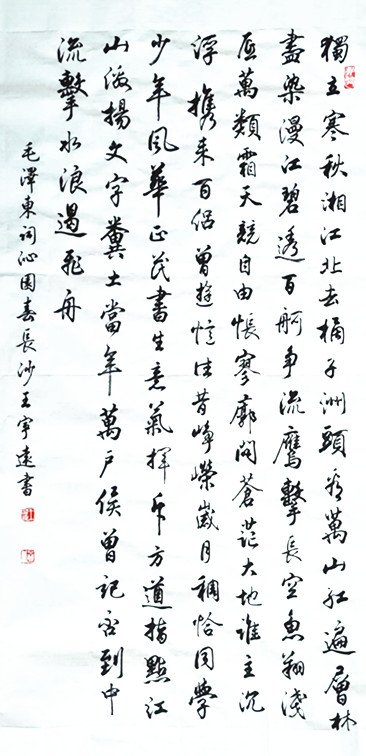 獨立寒秋湘江北去橘子洲頭看萬山紅遍層林
盡染漫江碧透百舸爭流鷹擊長空魚翔淺
底萬類霜天競自由悵寥廓問蒼茫大地誰主沉
浮携来百侣曾遊憶往昔崢嶸歲月稠恰同學
少年風華正茂書生意氣揮斥方遒指點江
山激揚文字糞土當年萬户侯曾記否到中
流擊水浪遏飛舟
毛澤東詞沁園春長沙王宇遠書